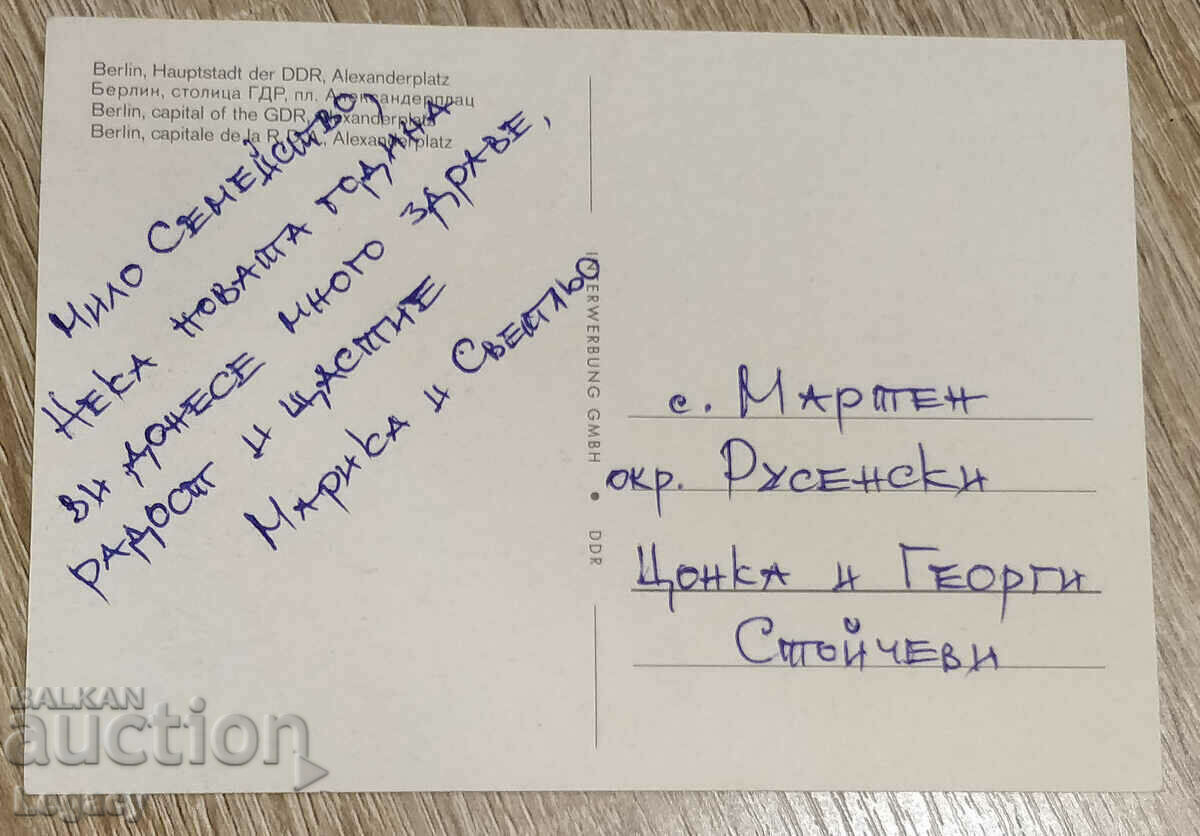 Berlin, Hauptstadt der DDR, Alexanderplatz
Берлин, столица ГДР, пл. Александерплац
Berlin, capital of the GDR, Alexanderplatz
Berlin, capitale de la R.D.A., Alexanderplatz
Мило Семейство,
Нека новата година
ви донесе много здраве,
радост и щастие
Марика и Светльо
INTERWERBUNG GMBH • DDR
с. Мартен
окр. Русенски
Цонка и Георги
Стойчеви
BALKAN
auction
Legacy